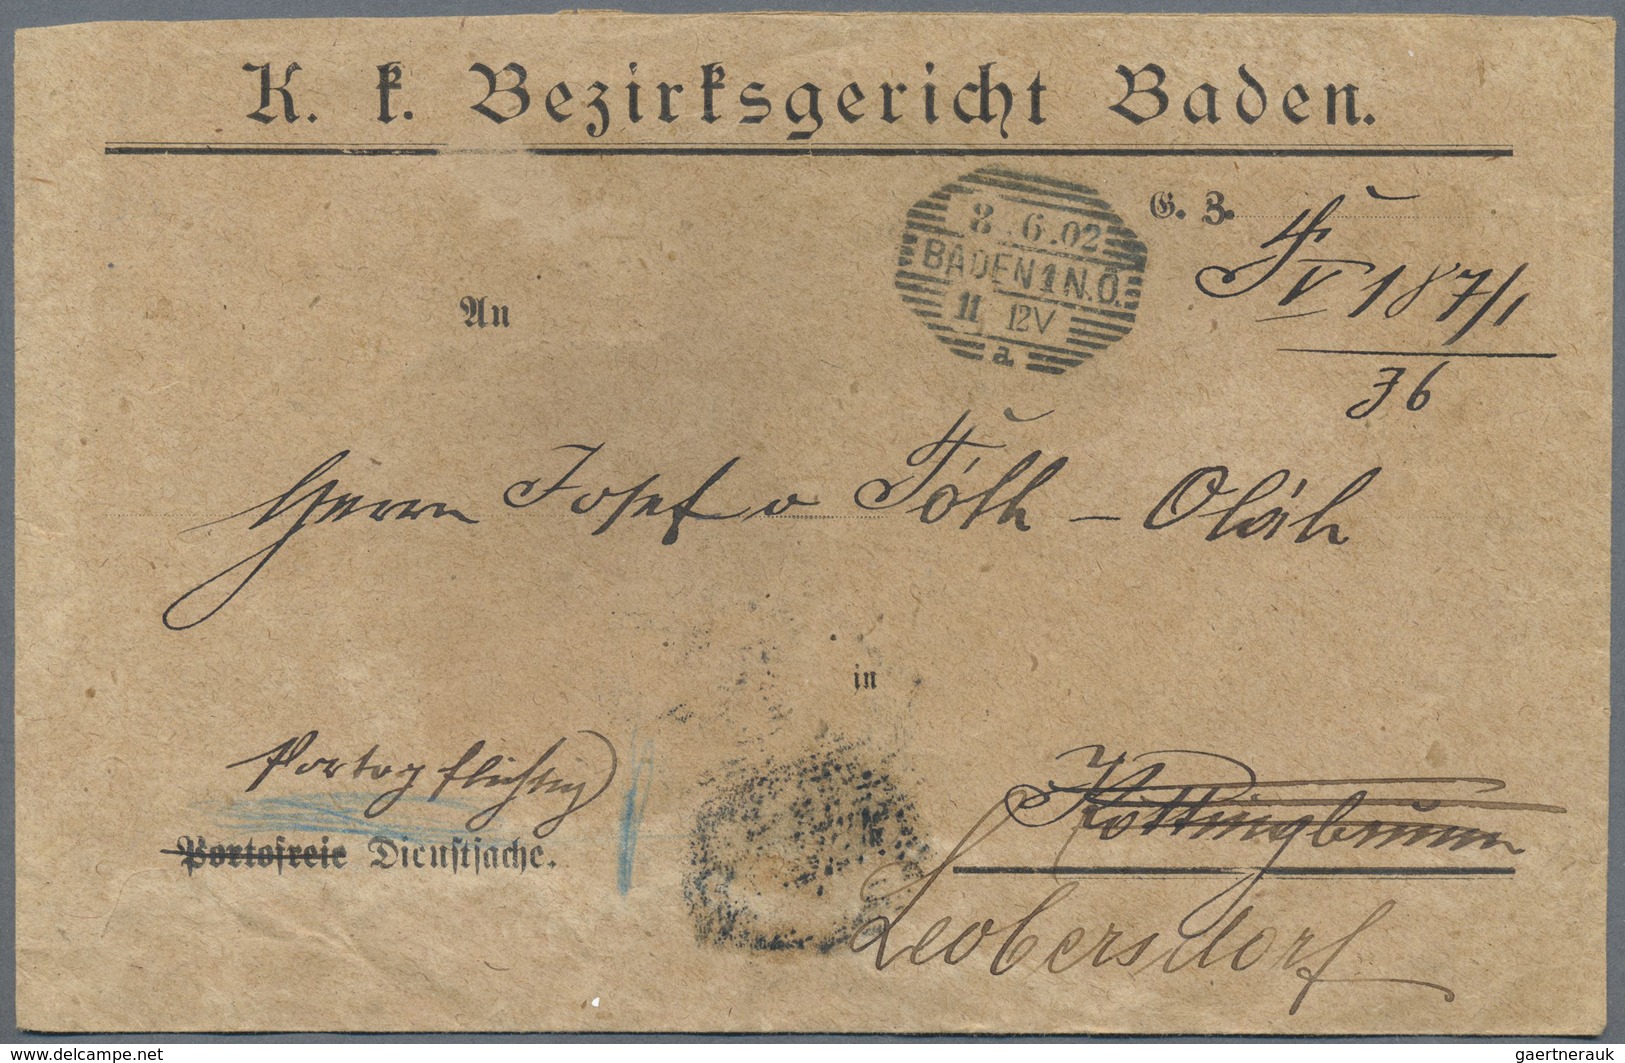 K. k. Bezirksgericht Baden.
G. Z.
8.6.02
BADEN 1 N.Ö.
11 12V
a
V 187/1
36
An
Herrn Josef v Tóth – Oláh
in
Portopflichtig
Portofreie Dienstsache.
Kottingbrunn
Leobersdorf
www.delcampe.net
gaertnerauk